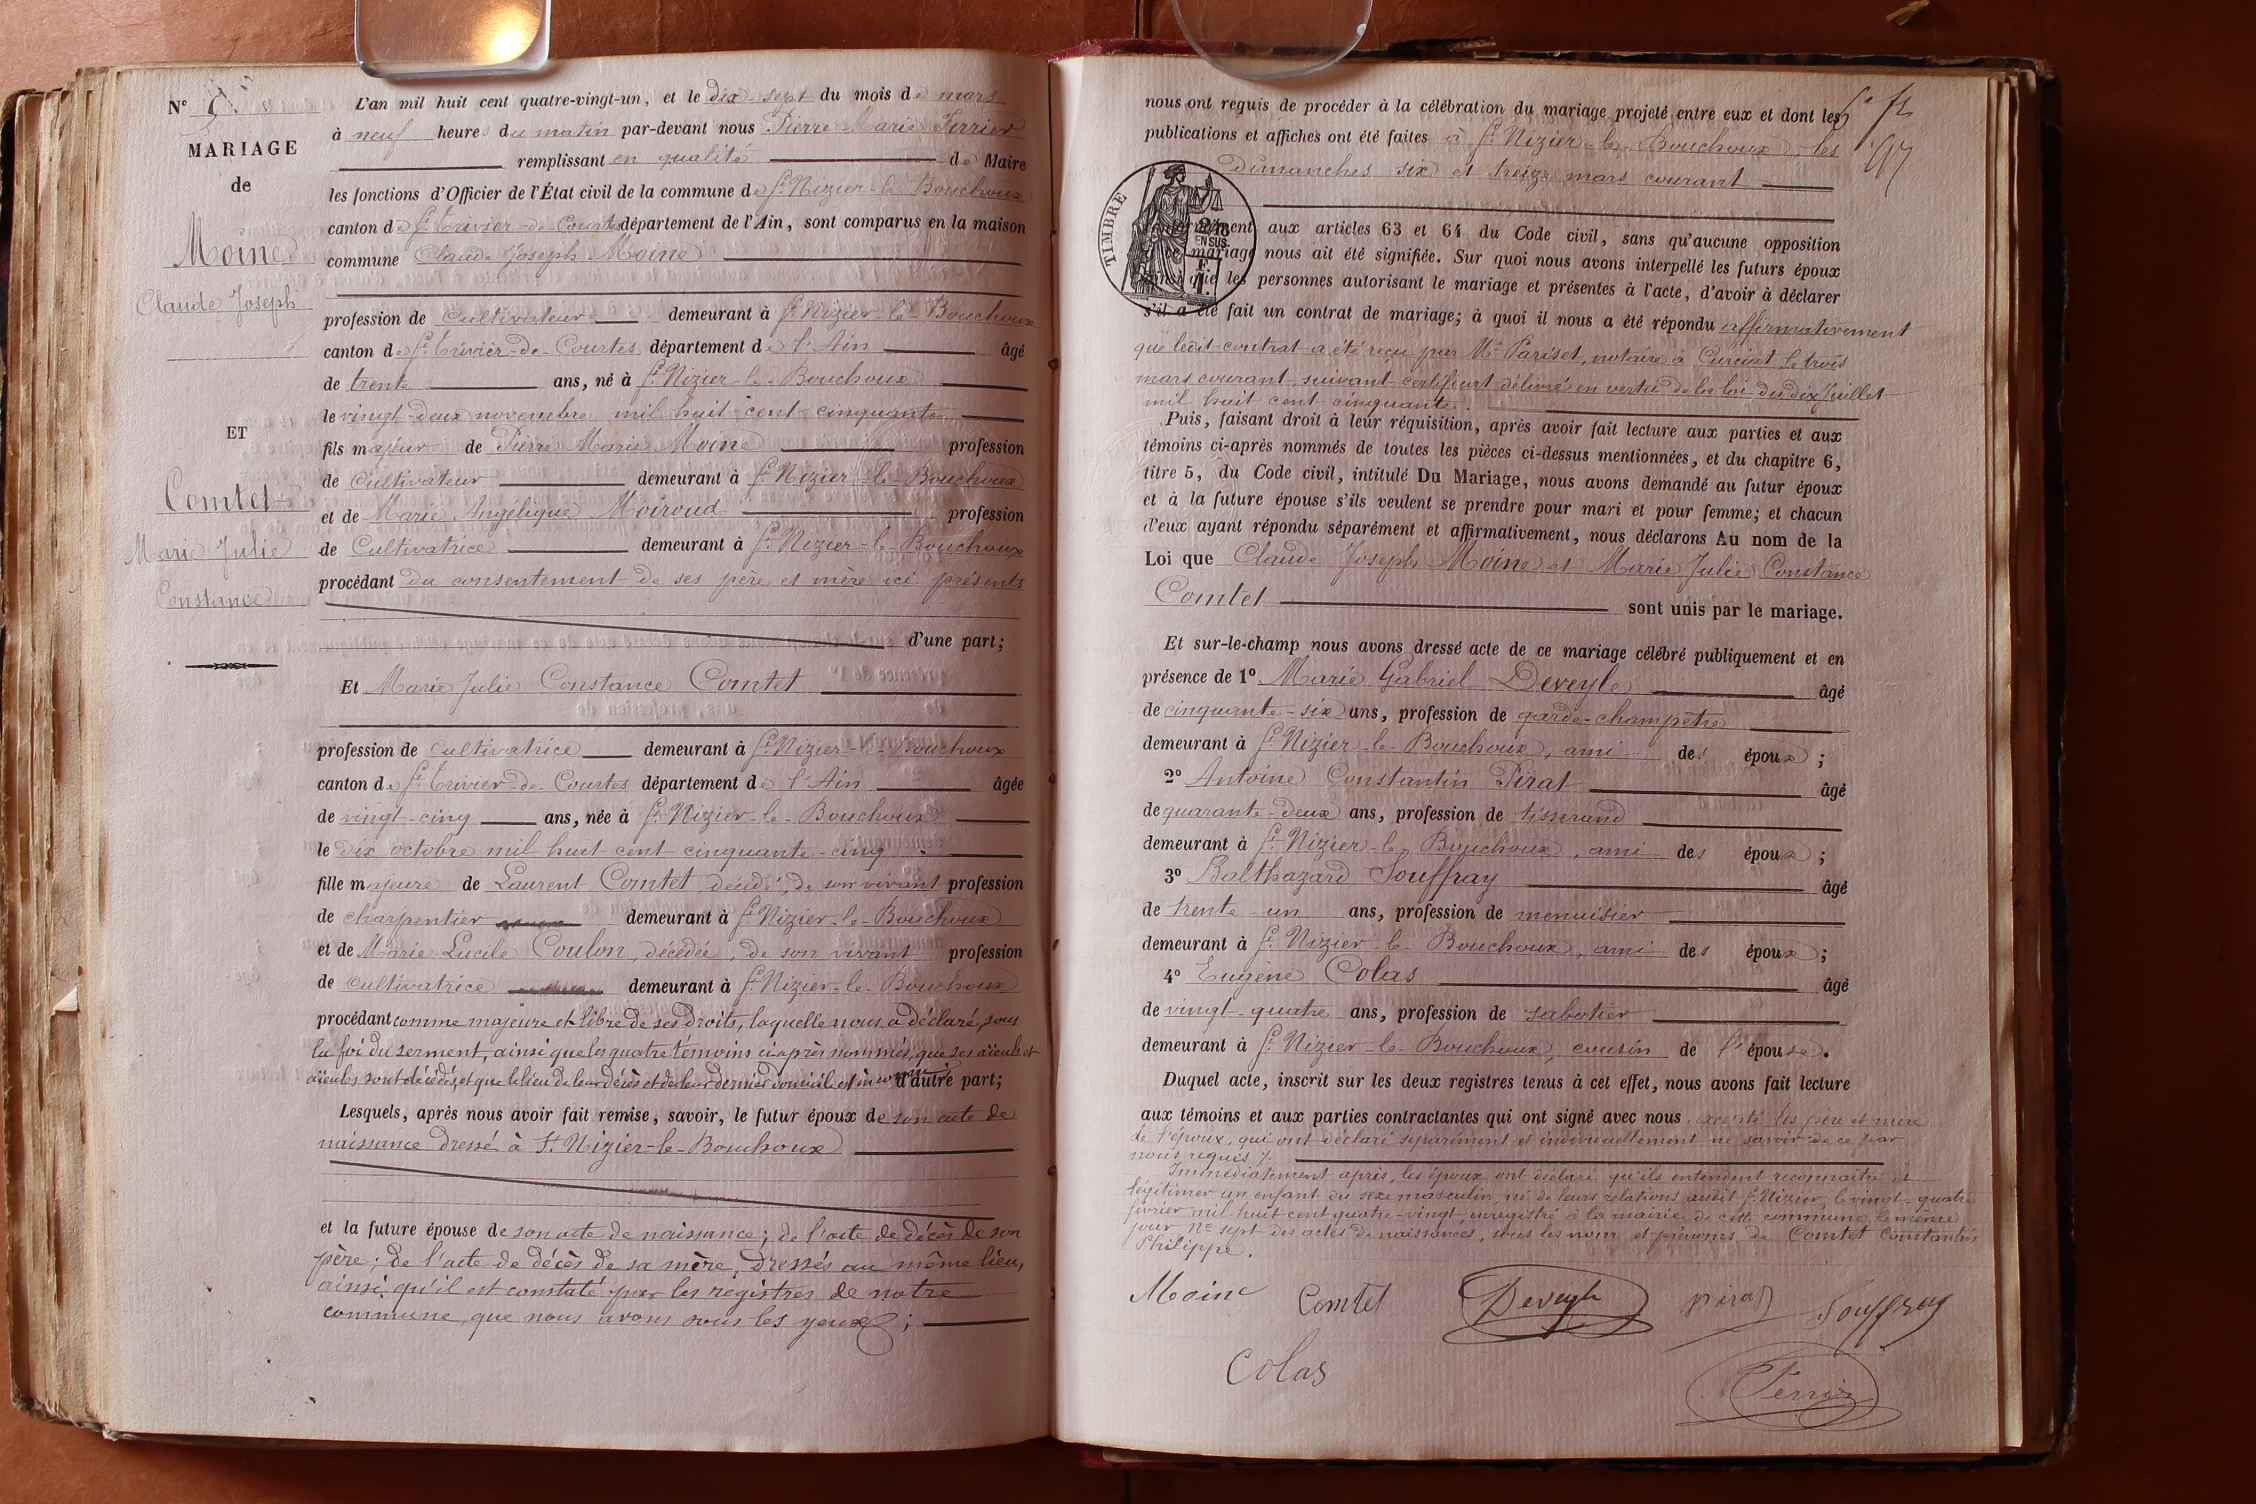 N° 7.
MARIAGE
de
Moine
Claude Joseph
ET
Comtet
Marie Julie
Constance
L'an mil huit cent quatre-vingt-un, et le dix-sept du mois de mars
à neuf heures du matin par-devant nous Pierre Marie Terrier
remplissant en qualité de Maire
les fonctions d'Officier de l'État civil de la commune de St Nizier-le-Bouchoux
canton de St Trivier-de-Courtes département de l'Ain, sont comparus en la maison
commune Claude Joseph Moine
profession de Cultivateur demeurant à St Nizier-le-Bouchoux
canton de St Trivier-de-Courtes département de l'Ain âgé
de trente ans, né à St Nizier-le-Bouchoux
le vingt-deux novembre mil huit cent cinquante
fils majeur de Pierre Marie Moine profession
de Cultivateur demeurant à St Nizier-le-Bouchoux
et de Marie Angélique Moiroud profession
de Cultivatrice demeurant à St Nizier-le-Bouchoux
procédant du consentement de ses père et mère ici présents
d'une part;
Et Marie Julie Constance Comtet
profession de cultivatrice demeurant à St Nizier-le-Bouchoux
canton de St Trivier-de-Courtes département de l'Ain âgée
de vingt-cinq ans, née à St Nizier-le-Bouchoux
le dix octobre mil huit cent cinquante-cinq
fille majeure de Laurent Comtet décédé, de son vivant profession
de charpentier demeurant à St Nizier-le-Bouchoux
et de Marie Lucile Coulon, décédée, de son vivant profession
de cultivatrice demeurant à St Nizier-le-Bouchoux
procédant comme majeure et libre de ses droits, laquelle nous a déclaré, sous
la foi du serment, ainsi que les quatre témoins ci-après nommés, que ses aïeuls et
aïeules sont décédés et que le lieu de leur décès et de leur dernier domicile est inconnu d'autre part;
Lesquels, après nous avoir fait remise, savoir, le futur époux de son acte de
naissance dressé à St Nizier-le-Bouchoux
et la future épouse de son acte de naissance; de l'acte de décès de son
père; de l'acte de décès de sa mère, dressés au même lieu,
ainsi qu'il est constaté par les registres de notre
commune, que nous avons sous les yeux;
nous ont requis de procéder à la célébration du mariage projeté entre eux et dont les
publications et affiches ont été faites à St Nizier-le-Bouchoux, les
dimanches six et treize mars courant
TIMBRE
2/10
EN SUS
aux articles 63 et 64 du Code civil, sans qu'aucune opposition
mariage nous ait été signifiée. Sur quoi nous avons interpellé les futurs époux
que les personnes autorisant le mariage et présentes à l'acte, d'avoir à déclarer
s'il a été fait un contrat de mariage; à quoi il nous a été répondu affirmativement
que ledit contrat a été reçu par Me Pariset, notaire à Curciat le trois
mars courant suivant certificat délivré en vertu de la loi du dix juillet
mil huit cent cinquante.
Puis, faisant droit à leur réquisition, après avoir fait lecture aux parties et aux
témoins ci-après nommés de toutes les pièces ci-dessus mentionnées, et du chapitre 6,
titre 5, du Code civil, intitulé Du Mariage, nous avons demandé au futur époux
et à la future épouse s'ils veulent se prendre pour mari et pour femme; et chacun
d'eux ayant répondu séparément et affirmativement, nous déclarons Au nom de la
Loi que Claude Joseph Moine et Marie Julie Constance
Comtet sont unis par le mariage.
Et sur-le-champ nous avons dressé acte de ce mariage célébré publiquement et en
présence de 1° Marie Gabriel Deveyle âgé
de cinquante-six ans, profession de garde-champêtre
demeurant à St Nizier-le-Bouchoux, ami des époux;
2° Antoine Constantin Pirat âgé
de quarante-deux ans, profession de tisserand
demeurant à St Nizier-le-Bouchoux, ami des époux;
3° Balthazard Souffray âgé
de trente-un ans, profession de menuisier
demeurant à St Nizier-le-Bouchoux, ami des époux;
4° Eugène Colas âgé
de vingt-quatre ans, profession de sabotier
demeurant à St Nizier-le-Bouchoux, cousin de l'épouse.
Duquel acte, inscrit sur les deux registres tenus à cet effet, nous avons fait lecture
aux témoins et aux parties contractantes qui ont signé avec nous, excepté les père et mère
de l'époux, qui ont déclaré séparément et individuellement ne savoir de ce par
nous requis
Immédiatement après, les époux ont déclaré qu'ils entendent reconnaître et
légitimer un enfant du sexe masculin, né de leurs relations audit St Nizier, le vingt-quatre
février mil huit cent quatre-vingt, enregistré à la mairie de cette commune le même
jour No sept des actes de naissances, sous les nom et prénoms de Comtet Constantin
Philippe.
Moine Comtet Deveyle Pirat Souffray
Colas Terrier